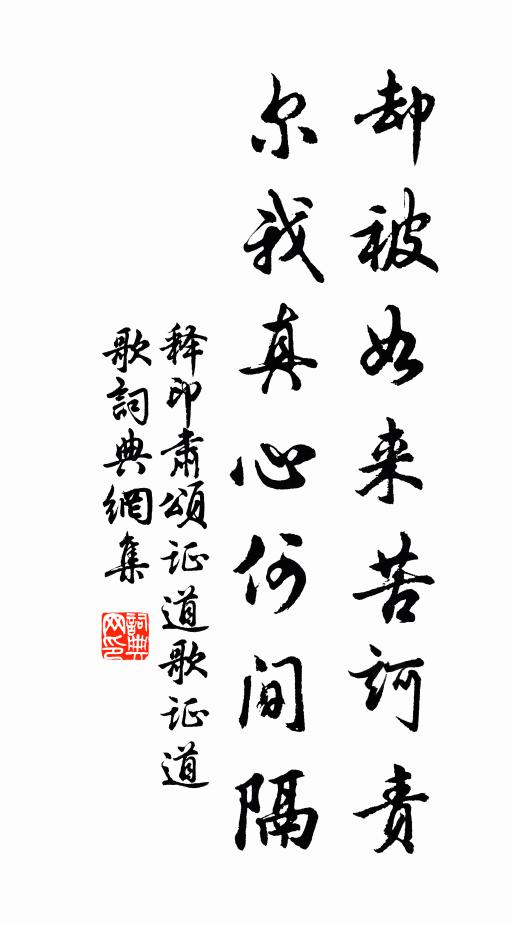 却被如来苦诃责
尔我真心何间隔
释印肃颂证道歌证道
歌詞典網集
詞典
网印